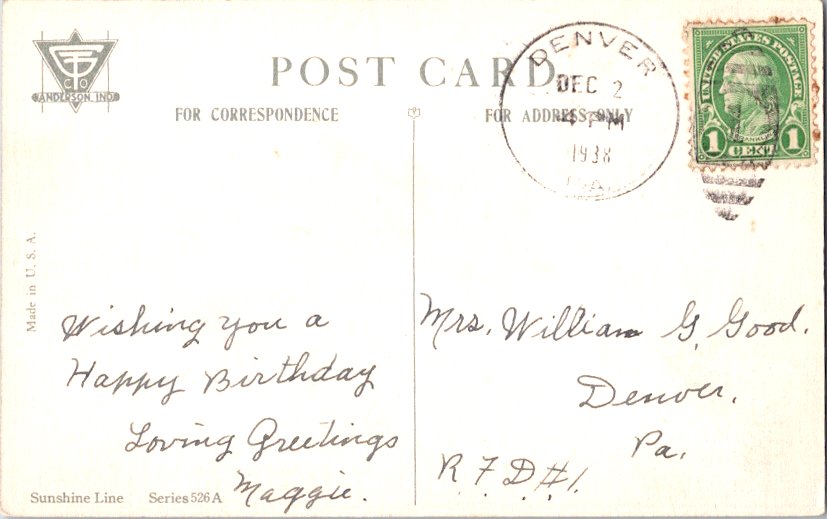 GT
CO
ANDERSON, IND.
POST CARD
FOR CORRESPONDENCE
FOR ADDRESS ONLY
DENVER
DEC 2
4 PM
1938
PA.
UNITED STATES POSTAGE
FRANKLIN
1 CENT 1
Made in U. S. A.
Wishing you a
Happy Birthday
Loving Greetings
Maggie.
Mrs. William G. Good.
Denver.
Pa.
R F D #1.
Sunshine Line Series 526 A